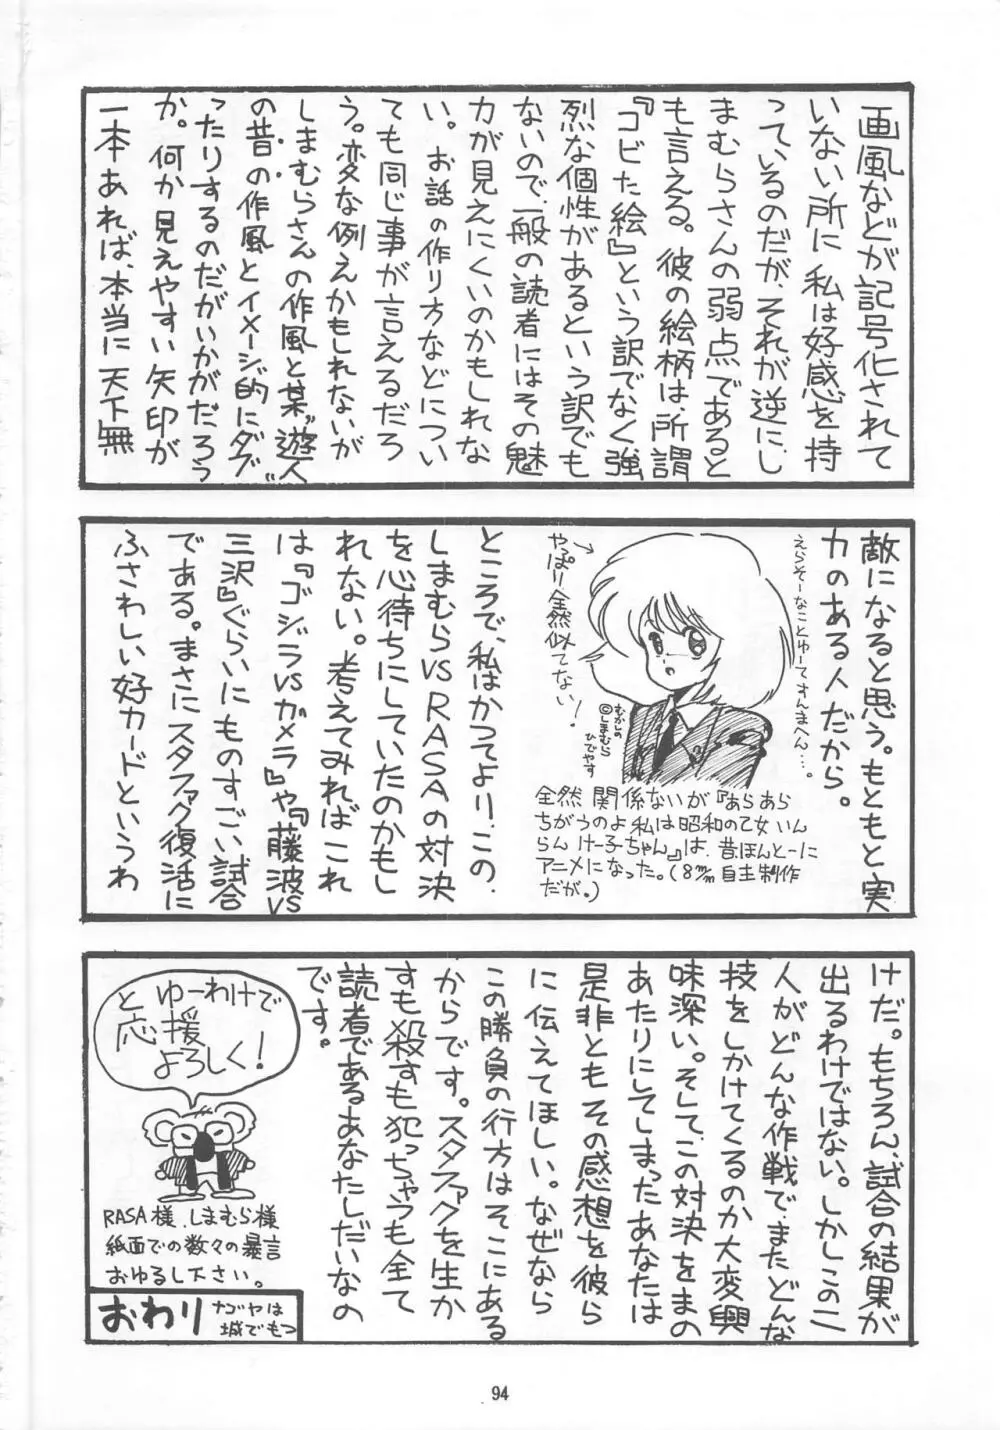 画風などが記号化されて
いない所に私は好感を持
っているのだが、それが逆にし
まむらさんの弱点であると
も言える。彼の絵柄は、所謂
『コビた絵』という訳でなく強
烈な個性があるという訳でも
ないので、一般の読者にはその魅
力が見えにくいのかもしれな
い。お話の作り方などについ
ても同じ事が言えるだろ
う。変な例えかもしれないが
しまむらさんの作風と某〝遊人〟
の昔の作風とイメージ的にダブ
ったりするのだがいかがだろう
か。何か見えやすい矢印が
一本あれば、本当に天下無
敵になると思う。もともと実
力のある人だから。
えらそーなことゆーてすんまへん…。
やっぱり全然似てない！
むかしの
©しまむら
ひでやす
全然関係ないが『あらあら
ちがうのよ私は昭和の乙女いん
らんけー子ちゃん』は、昔ほんとーに
アニメになった。(8m/m自主制作
だが。)
ところで、私はかつてより、この
しまむらVSRASAの対決
を心待ちにしていたのかもし
れない。考えてみればこれ
は『ゴジラVSガメラ』や『藤波VS
三沢』ぐらいにものすごい試合
である。まさにスタファグ復活に
ふさわしい好カードというわ
けだ。もちろん、試合の結果が
出るわけではない。しかしこの二
人がどんな作戦で、またどんな
技をしかけてくるのか大変興
味深い。そして、この対決をまの
あたりにしてしまったあなたは
是非ともその感想を彼ら
に伝えてほしい。なぜなら
この勝負の行方はそこにある
からです。スタファグを生か
すも殺すも犯っちゃうも全て
読者であるあなたしだいなの
です。
と ゆーわけで
応援
よろしく！
RASA様、しまむら様
紙面での数々の暴言
おゆるし下さい。
おわり
ナゴヤは
城でもつ
94